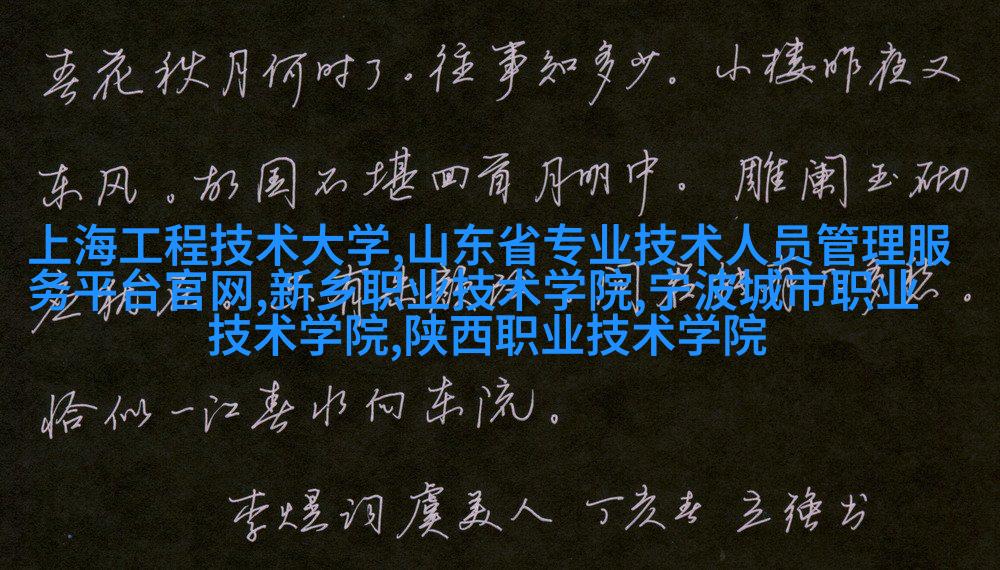 春花秋月何时了。往事知多少。小楼昨夜又
东风。故国不堪回首月明中。雕阑玉砌
上海工程技术大学,山东省专业技术人员管理服
务平台官网,新乡职业技术学院,宁波城市职业
技术学院,陕西职业技术学院
恰似一江春水向东流。
李煜词虞美人 丁亥春 立强书